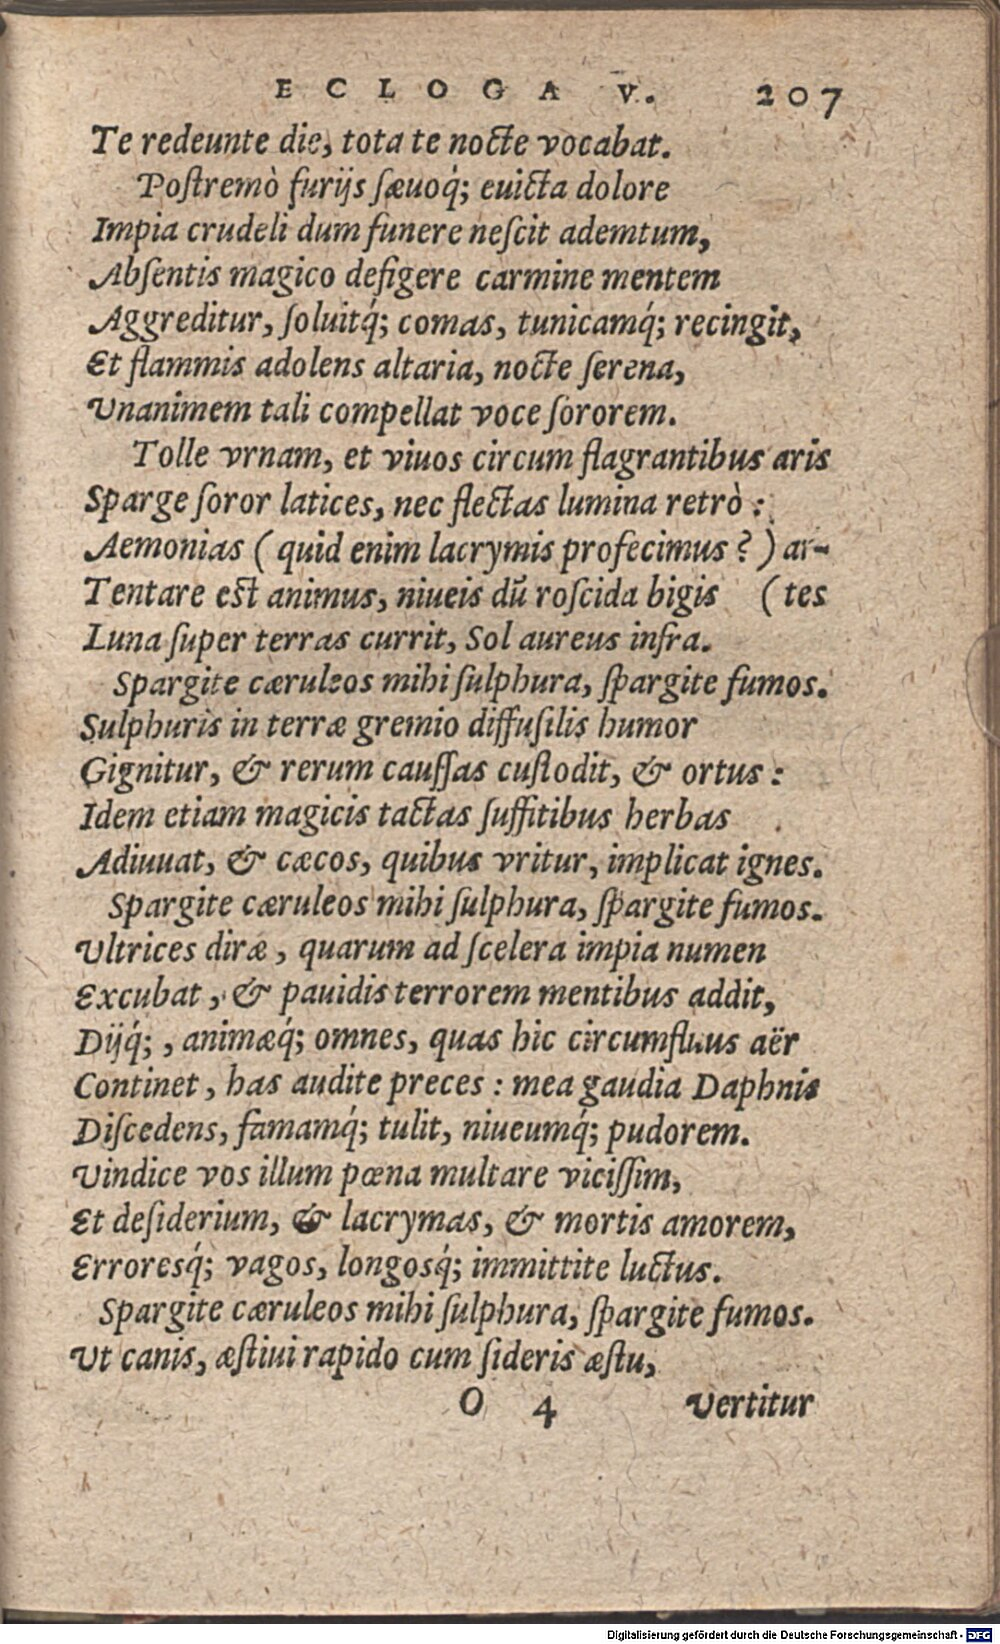 ECLOGA V. 207
Te redeunte die, tota te nocte vocabat.
Postremò furijs sæuoq́; euicta dolore
Impia crudeli dum funere nescit ademtum,
Absentis magico defigere carmine mentem
Aggreditur, soluitq́; comas, tunicamq́; recingit,
Et flammis adolens altaria, nocte serena,
Vnanimem tali compellat voce sororem.
Tolle vrnam, et viuos circum flagrantibus aris
Sparge soror latices, nec flectas lumina retrò:
Aemonias (quid enim lacrymis profecimus?) ar-
Tentare est animus, niueis dū roscida bigis (tes
Luna super terras currit, Sol aureus infra.
Spargite cæruleos mihi sulphura, spargite fumos.
Sulphuris in terræ gremio diffusilis humor
Gignitur, & rerum caussas custodit, & ortus:
Idem etiam magicis tactas suffitibus herbas
Adiuuat, & cæcos, quibus vritur, implicat ignes.
Spargite cæruleos mihi sulphura, spargite fumos.
Vltrices diræ, quarum ad scelera impia numen
Excubat, & pauidis terrorem mentibus addit,
Dijq́;, animæq́; omnes, quas hic circumfluus aër
Continet, has audite preces: mea gaudia Daphnis
Discedens, famamq́; tulit, niueumq́; pudorem.
Vindice vos illum pœna multare vicissim,
Et desiderium, & lacrymas, & mortis amorem,
Erroresq́; vagos, longosq́; immittite luctus.
Spargite cæruleos mihi sulphura, spargite fumos.
Vt canis, æstiui rapido cum sideris æstu,
O 4 Vertitur
Digitalisierung gefördert durch die Deutsche Forschungsgemeinschaft - DFG